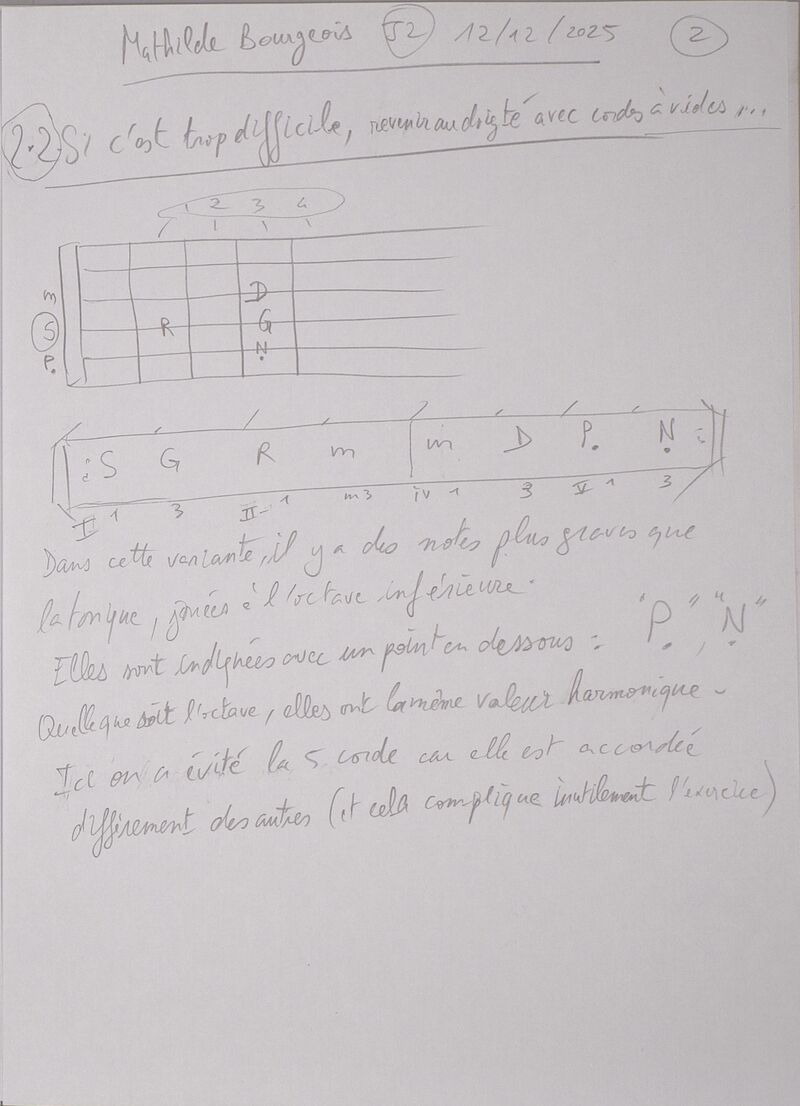 Mathilde Bourgeois J2 12/12/2025 2
2.2 Si c'est trop difficile, revenir au doigté avec cordes à vides...
1 2 3 4
m D
S R G
P. Ṇ
: S G R m m D P. Ṇ :
I 1 3 II- 1 m3 IV 1 3 V 1 3
Dans cette variante, il y a des notes plus graves que
la tonique, jouées à l'octave inférieure.
Elles sont indiquées avec un point en dessous : "P.", "Ṇ"
Quelle que soit l'octave, elles ont la même valeur harmonique -
Ici on a évité la 5 corde car elle est accordée
différement des autres (et cela complique inutilement l'exercice)